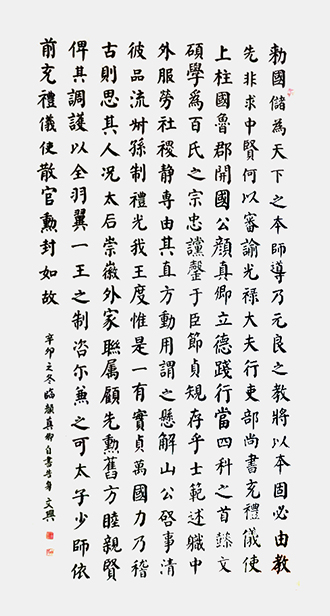 勅國儲為天下之本師導乃元良之教將以本固必由教
先非求中賢何以審諭光祿大夫行吏部尚書充禮儀使
上柱國魯郡開國公顏真卿立德踐行當四科之首懿文
碩學為百氏之宗忠讜罄于臣節貞規存乎士範述職中
外服勞社稷静専由其直方動用謂之懸解山公啓事清
彼品流叔孫制禮光我王度惟是一有實貞萬國力乃稽
古則思其人況太后崇徽外家聯属顧先勳舊方睦親賢
俾其調護以全羽翼一王之制咨尔兼之可太子少師依
前充禮儀使散官勳封如故
辛卯之冬臨顏真卿自書告身 文興